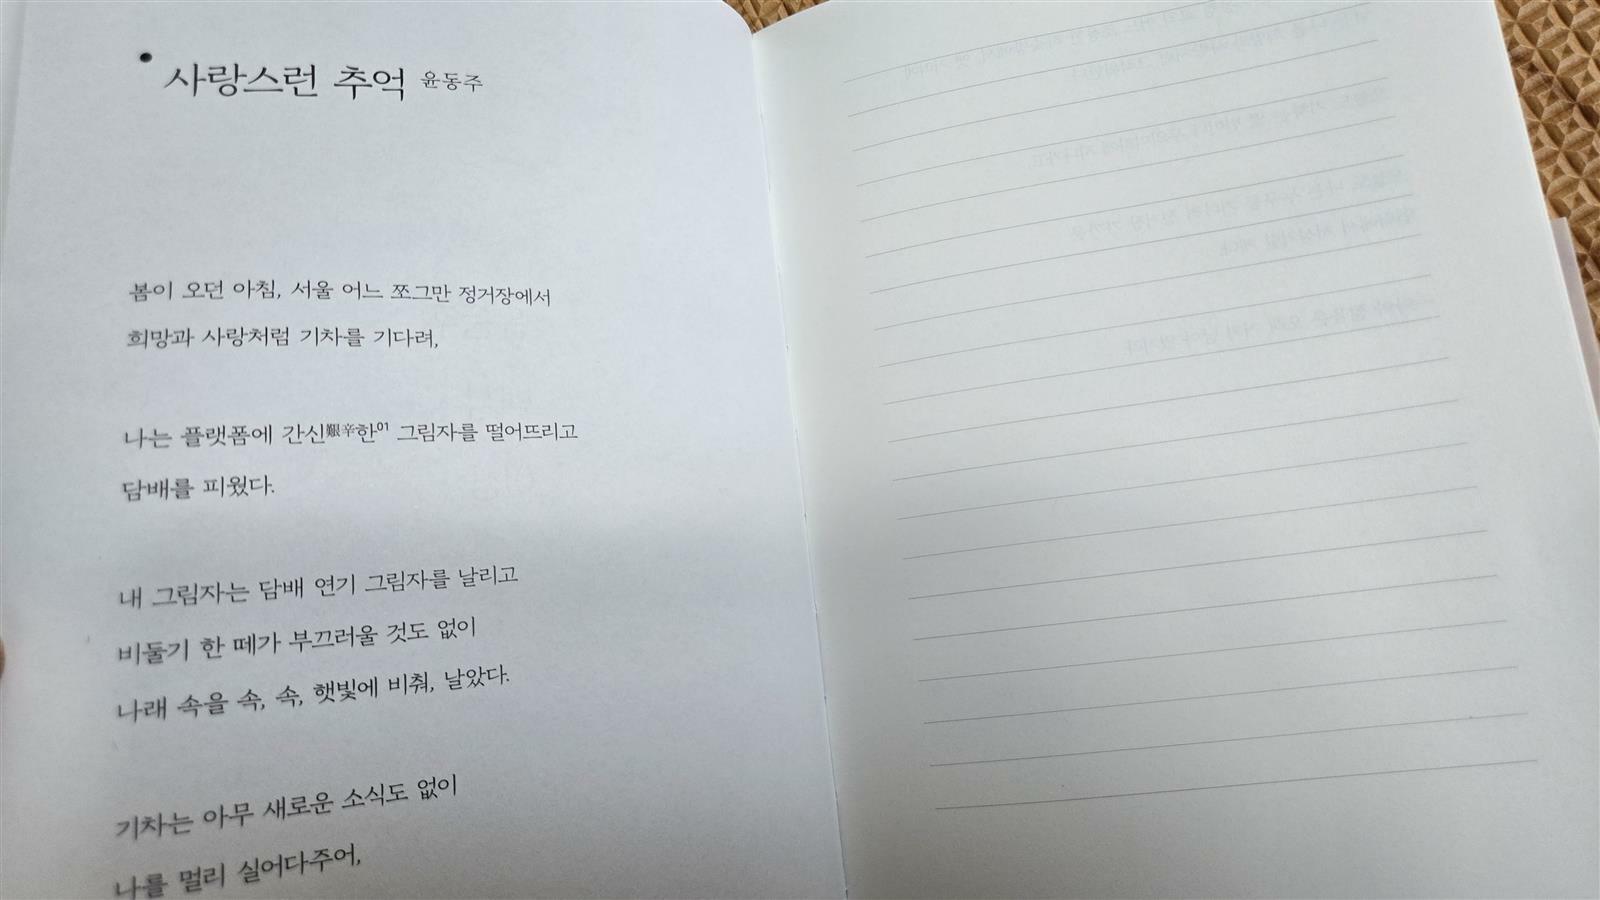 사랑스런 추억 윤동주
봄이 오던 아침, 서울 어느 쪼그만 정거장에서
희망과 사랑처럼 기차를 기다려,
나는 플랫폼에 간신艱辛한01 그림자를 떨어뜨리고
담배를 피웠다.
내 그림자는 담배 연기 그림자를 날리고
비둘기 한 떼가 부끄러울 것도 없이
나래 속을 속, 속, 햇빛에 비춰, 날았다.
기차는 아무 새로운 소식도 없이
나를 멀리 실어다주어,